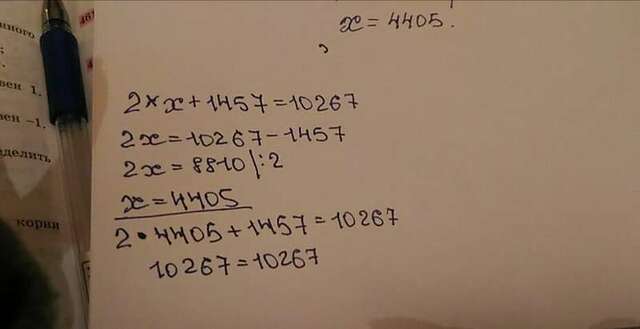 нного
вен 1.
вен -1.
делить
корни
x = 4405.
2*x+1457=10267
2x=10267-1457
2x = 8810 |:2
x = 4405
2 • 4405 + 1457 = 10267
10267 = 10267